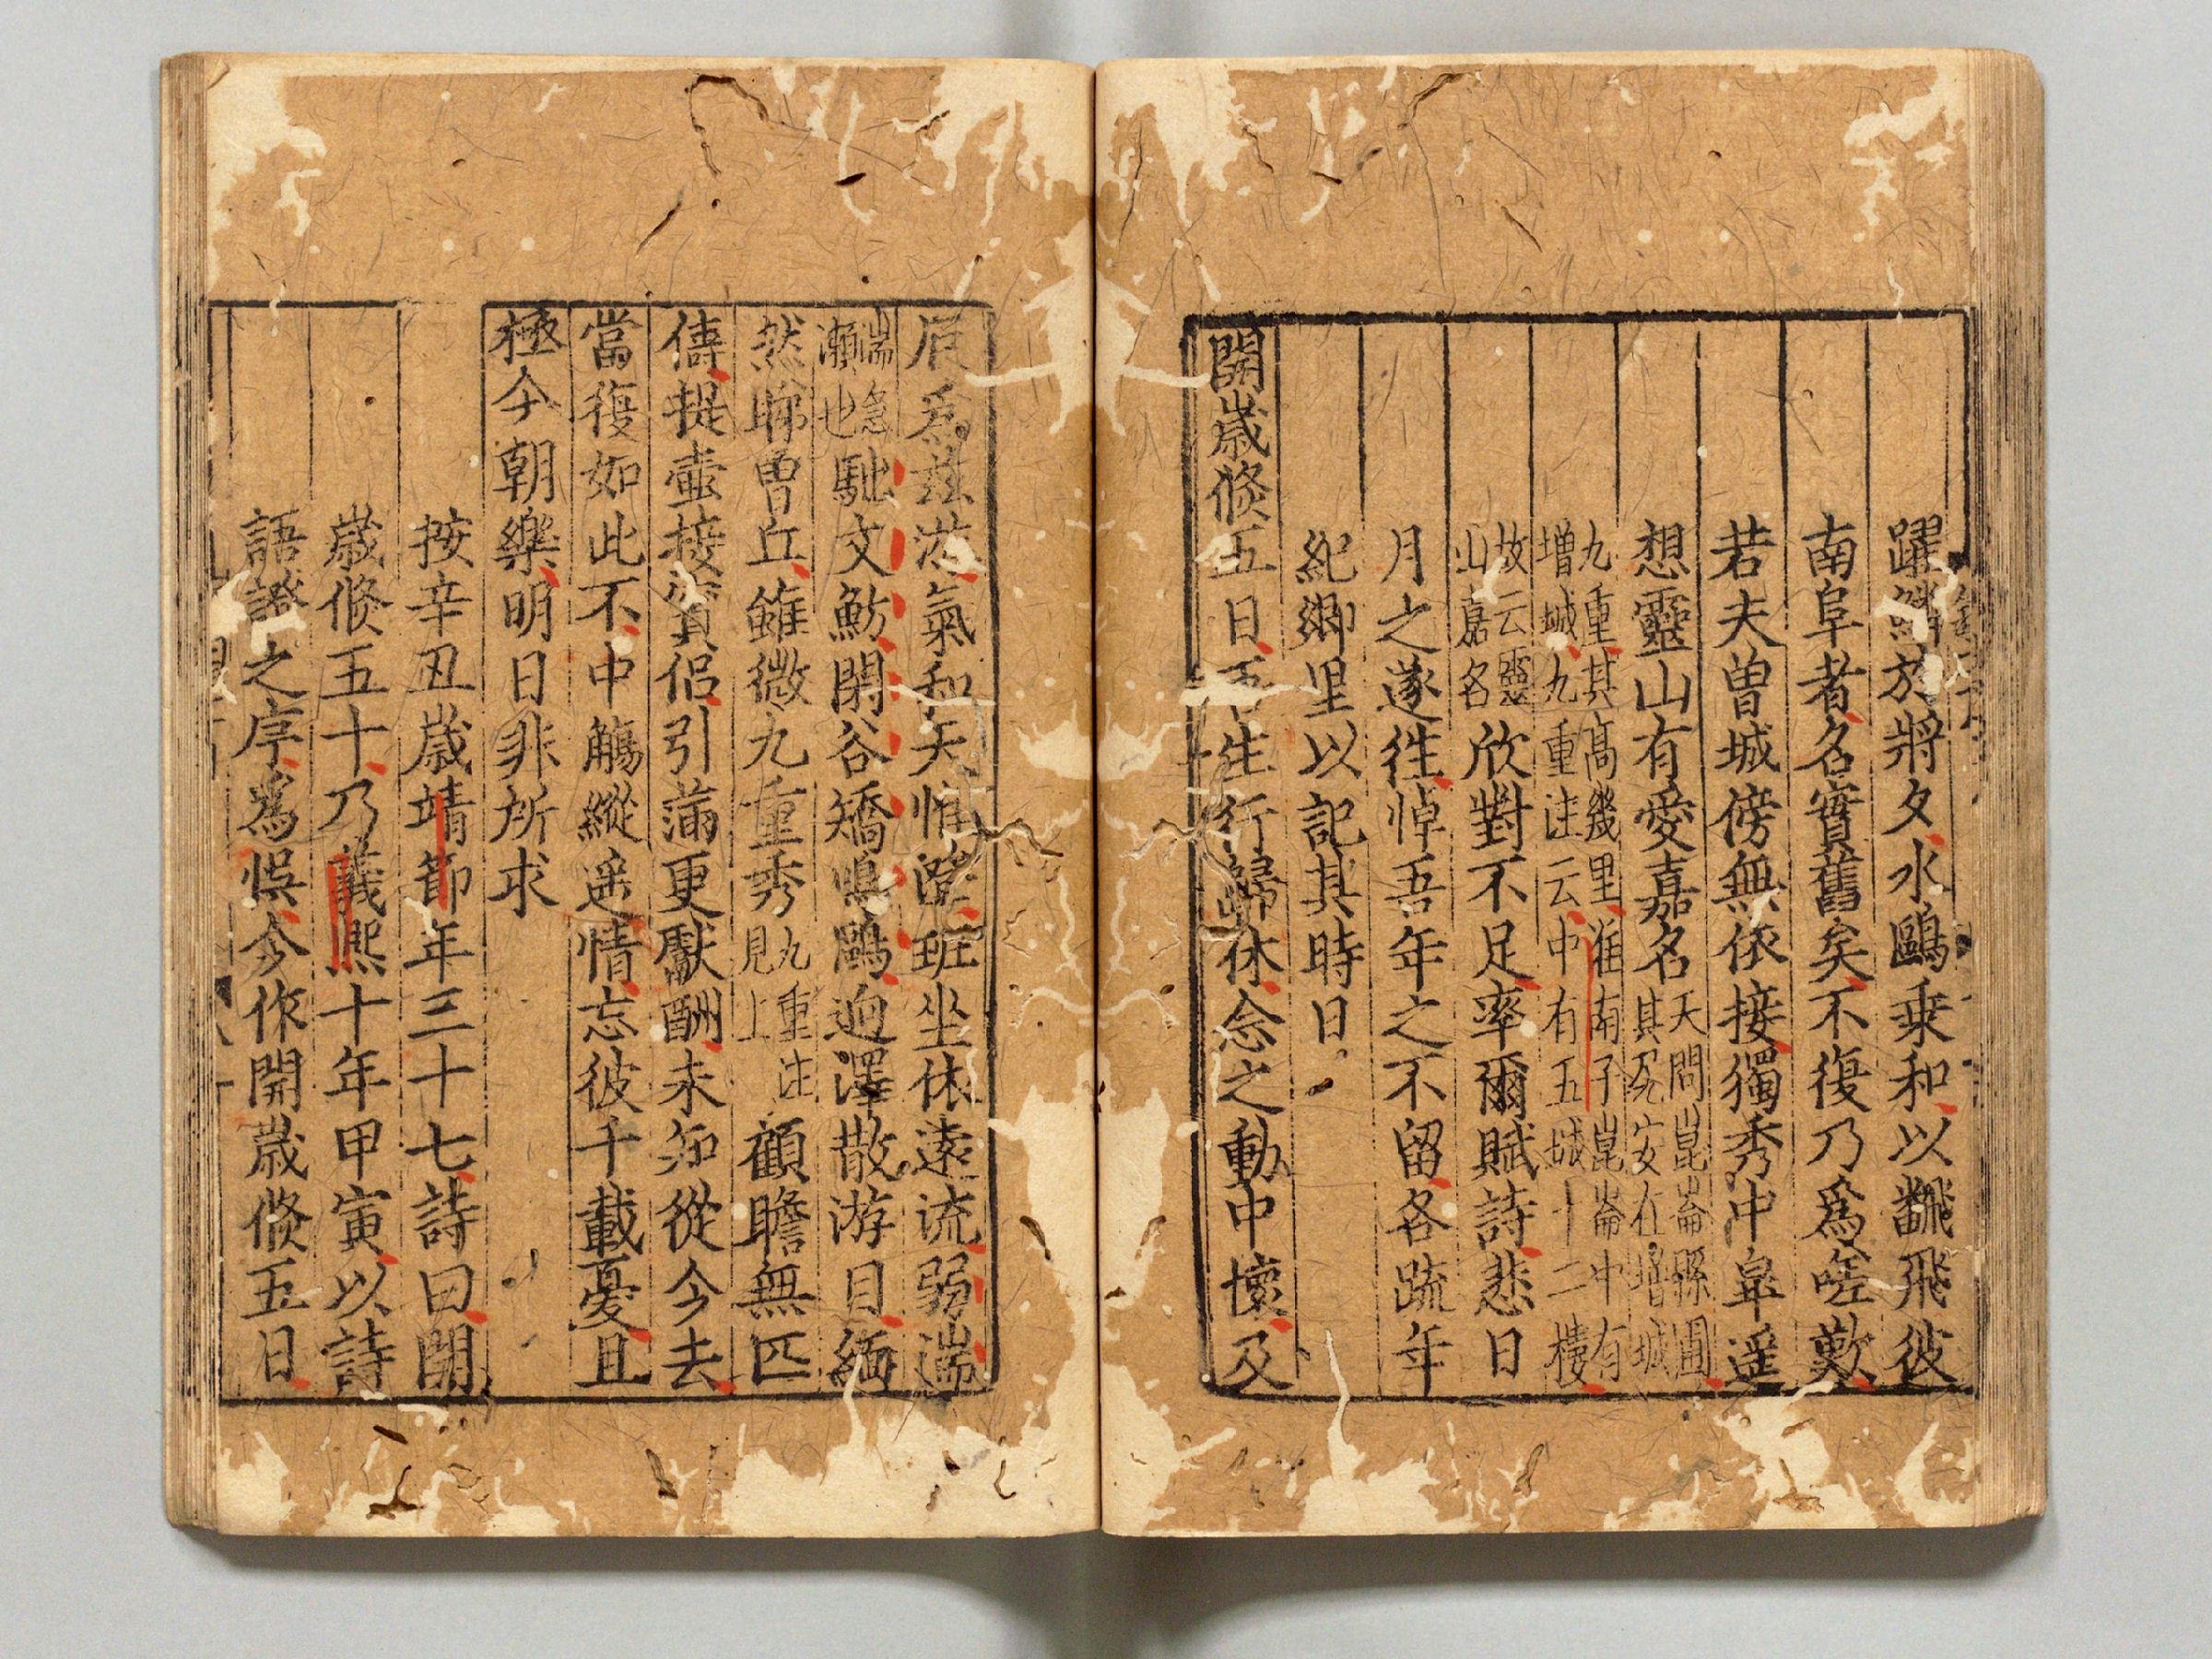 躍鱗於將夕水鷗乗和以飜飛彼
南阜者名實舊矣不復乃爲嗟歎
若夫曽城傍無依接獨秀中皐遥
想靈山有愛嘉名天問崑崙縣圃其尻安在増城
九重其髙幾里淮南子崑崙中有増城九重注云中有五城十二樓
故云靈山嘉名欣對不足率爾賦詩悲日
月之遂徃悼吾年之不留各疏年
紀鄉里以記其時日
開歳倐五日吾生行歸休念之動中懷及
辰爲兹游氣和天惟澄班坐依遠流弱湍
湍急瀬也馳文魴閑谷矯鳴鷗逈澤散游目緬
然睇曽丘雖微九重秀九重注見上顧瞻無匹
儔提壷接賓侣引滿更獻酬未知從今去
當復如此不中觴縱遥情忘彼千載憂且
極今朝樂明日非所求
按辛丑歳靖節年三十七詩曰開
歳倐五十乃義熈十年甲寅以詩
語證之序爲悞今作開歳倐五日